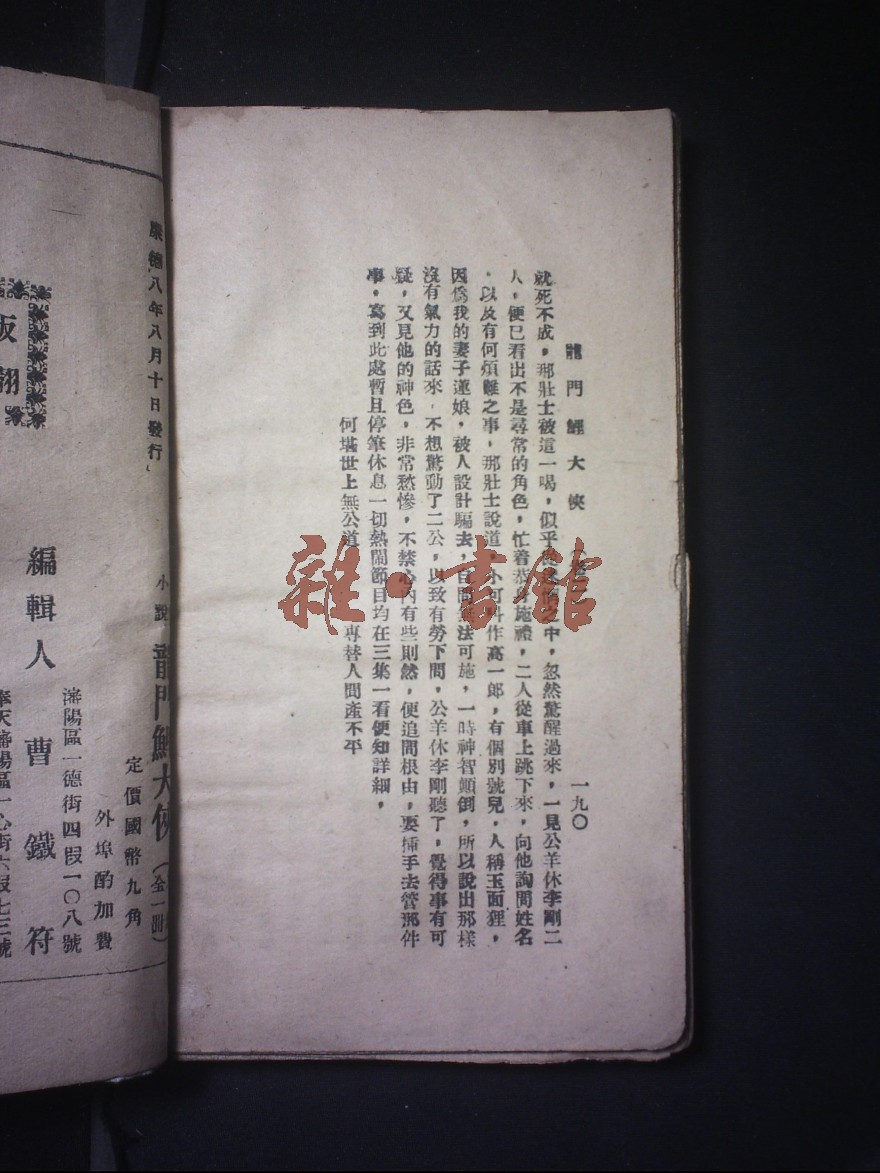 龍門鯉大俠
一九〇
就死不成，那壯士被這一喝，似乎從中，忽然驚醒過來，一見公羊休李剛二
人，便已看出不是尋常的角色，忙着恭施禮，二人從車上跳下來，向他詢問姓名
，以及有何煩難之事，那壯士說道，小可叫作高一郎，有個別號兒，人稱玉面狸，
因爲我的妻子蓮娘，被人設計騙去，自問無法可施，一時神智顛倒，所以說出那樣
沒有氣力的話來，不想驚動了二公，以致有勞下問，公羊休李剛聽了，覺得事有可
疑，又見他的神色，非常愁慘，不禁心內有些則然，便追問根由，要揷手去管那件
事。寫到此處暫且停筆休息一切熱鬧節目均在三集一看便知詳細，
何堪世上無公道 專替人間產不平
雜·書館
康德八年八月十日發行
小說 龍門鯉大俠（全一冊）
定價國幣九角
外埠酌加費
瀋陽區一德街四段一〇八號
編輯人 曹鐵符
奉天瀋陽區一心街六段七三號
版 翻